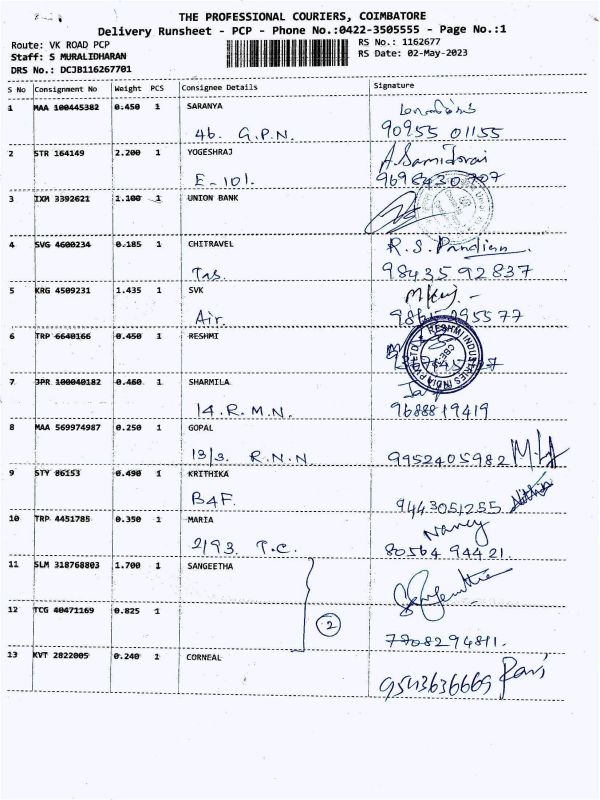 THE PROFESSIONAL COURIERS, COIMBATORE
Delivery Runsheet - PCP - Phone No.:0422-3505555 - Page No.:1
Route: VK ROAD PCP RS No.: 1162677
Staff: S MURALIDHARAN RS Date: 02-May-2023
DRS No.: DCJB116267701
S No Consignment No Weight PCS Consignee Details Signature
1 MAA 100445382 0.450 1 SARANYA
46. G.P.N. 90955 01155
2 STR 164149 2.200 1 YOGESHRAJ A.Samidorai
E-101.
3 IXM 3392621 1.100 1 UNION BANK
4 SVG 4600234 0.185 1 CHITRAVEL R.S.Pandian
98435 92837
5 KRG 4509231 1.435 1 SVK
Air.
6 TRP 6640166 0.450 1 RESHMI
RESHMI INDUSTRIES INDIA PVT LTD
7 JPR 100040182 0.460 1 SHARMILA
14. R.M.N. 9688819419
8 MAA 569974987 0.250 1 GOPAL
13/3. R.N.N 9952405982
9 STY 86153 0.490 1 KRITHIKA
B4F. 9443051255 Nithin
10 TRP 4451785 0.350 1 MARIA Nancy
2/93. T.C. 80564 94421.
11 SLM 318768803 1.700 1 SANGEETHA Sangeetha
12 TCG 40471169 0.825 1
2
7708294811.
13 KVT 2822005 0.240 1 CORNEAL
9543636669 Ravi